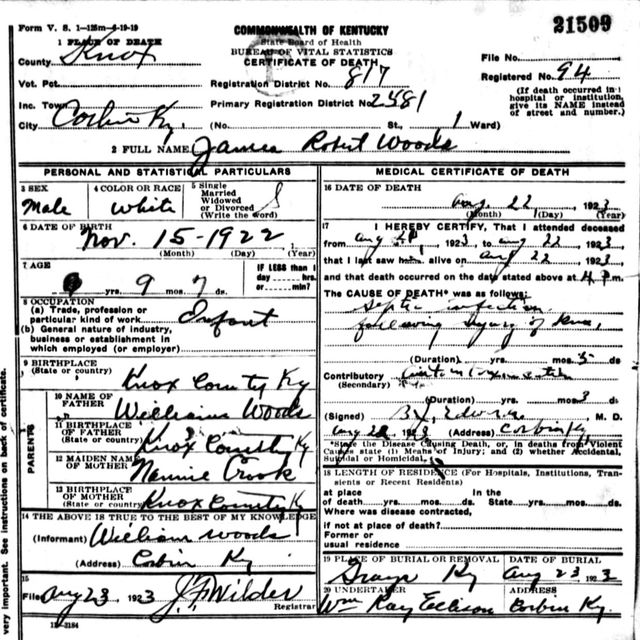 Form V. S. 1—125m—6-19-19
COMMONWEALTH OF KENTUCKY
21509
State Board of Health
BUREAU OF VITAL STATISTICS
CERTIFICATE OF DEATH
1 PLACE OF DEATH
County Knox
File No.
Vot. Pct.
Registration District No. 817
Registered No. 94
Inc. Town
Primary Registration District No. 2581
(If death occurred in hospital or institution, give its NAME instead of street and number.)
City Corbin Ky. (No. St., 1 Ward)
2 FULL NAME James Robert Woods
PERSONAL AND STATISTICAL PARTICULARS
3 SEX Male
4 COLOR OR RACE White
5 Single Married Widowed or Divorced (Write the word) S
6 DATE OF BIRTH Nov. 15-1922
(Month) (Day) (Year)
7 AGE
yrs. 9 mos. 7 ds.
IF LESS than 1 day hrs. or min?
8 OCCUPATION
(a) Trade, profession or particular kind of work Enfant
(b) General nature of industry, business or establishment in which employed (or employer)
9 BIRTHPLACE (State or country) Knox County Ky
PARENTS
10 NAME OF FATHER William Woods
11 BIRTHPLACE OF FATHER (State or country) Knox County Ky
12 MAIDEN NAME OF MOTHER Nannie Crook
13 BIRTHPLACE OF MOTHER (State or country) Knox County Ky
14 THE ABOVE IS TRUE TO THE BEST OF MY KNOWLEDGE
(Informant) William Woods
(Address) Corbin Ky
15
Filed Aug 23 1923 J. F. Wilder
Registrar
12—3184
MEDICAL CERTIFICATE OF DEATH
16 DATE OF DEATH
Aug. 22, 1923
(Month) (Day) (Year)
17 I HEREBY CERTIFY, That I attended deceased
from Aug 1923 to Aug 22 1923,
that I last saw him alive on Aug 22 1923,
and that death occurred on the date stated above at 4 P m.
The CAUSE OF DEATH* was as follows:
Septic infection
following injury of
(Duration) yrs. mos. 5 ds.
Contributory
(Secondary)
(Duration) yrs. mos. 3 ds.
(Signed) M. D.
1923 (Address) Corbin Ky.
*State the Disease Causing Death, or, in deaths from Violent Causes state (1) Means of Injury; and (2) whether Accidental, Suicidal or Homicidal.
18 LENGTH OF RESIDENCE (For Hospitals, Institutions, Transients or Recent Residents)
at place of death yrs. mos. ds. In the State yrs. mos. ds.
Where was disease contracted,
if not at place of death?
Former or usual residence
19 PLACE OF BURIAL OR REMOVAL Grays Ky
DATE OF BURIAL Aug 23 1923
20 UNDERTAKER Wm Ray Ellison
ADDRESS Corbin Ky.
very important. See instructions on back of certificate.